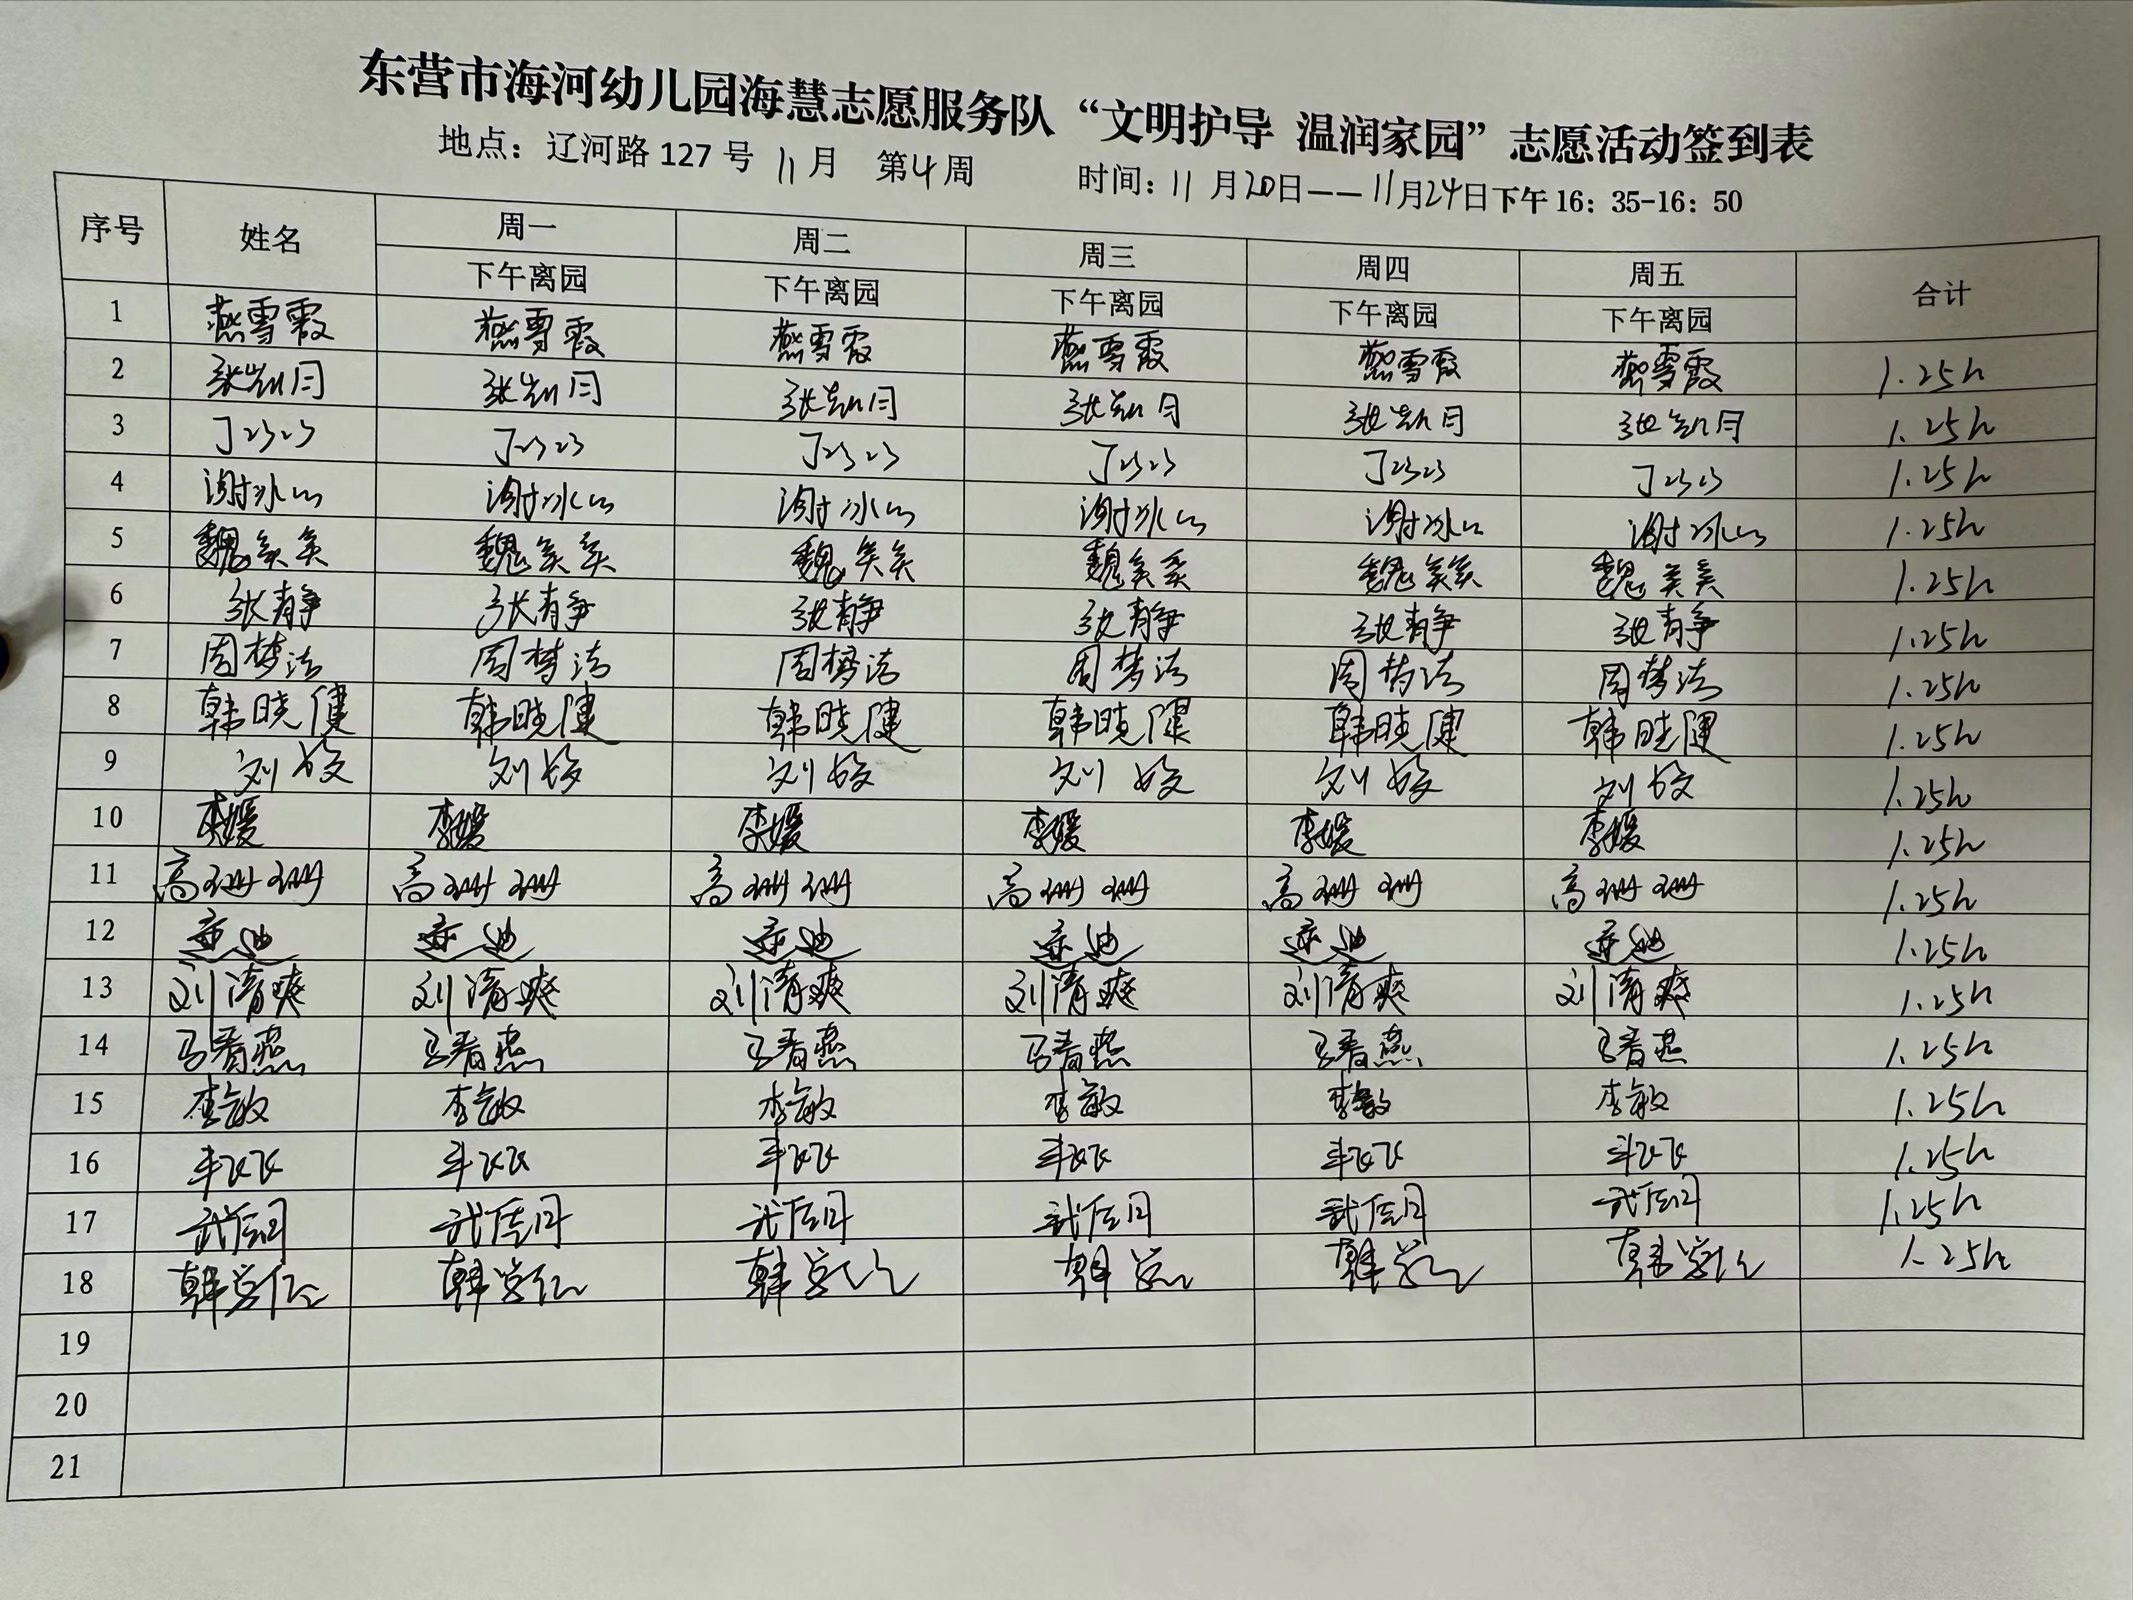 东营市海河幼儿园海慧志愿服务队“文明护导 温润家园”志愿活动签到表
地点：辽河路 127 号 11月 第4周 时间：11月20日——11月24日下午 16：35-16：50
序号 姓名 周一 周二 周三 周四 周五 合计
下午离园 下午离园 下午离园 下午离园 下午离园
1 燕雪霞 燕雪霞 燕雪霞 燕雪霞 燕雪霞 燕雪霞 1.25h
2 张凯月 张凯月 张凯月 张凯月 张凯月 张凯月 1.25h
3 丁 丁 丁 丁 丁 丁 1.25h
4 谢冰心 谢冰心 谢冰心 谢冰心 谢冰心 谢冰心 1.25h
5 魏 魏 魏 魏 魏 魏 1.25h
6 张静 张静 张静 张静 张静 张静 1.25h
7 周梦洁 周梦洁 周梦洁 周梦洁 周梦洁 周梦洁 1.25h
8 韩晓健 韩晓健 韩晓健 韩晓健 韩晓健 韩晓健 1.25h
9 刘姣 刘姣 刘姣 刘姣 刘姣 刘姣 1.25h
10 李媛 李媛 李媛 李媛 李媛 李媛 1.25h
11 高珊珊 高珊珊 高珊珊 高珊珊 高珊珊 高珊珊 1.25h
12 迪 迪 迪 迪 迪 迪 1.25h
13 刘清爽 刘清爽 刘清爽 刘清爽 刘清爽 刘清爽 1.25h
14 马春燕 马春燕 马春燕 马春燕 马春燕 马春燕 1.25h
15 李敏 李敏 李敏 李敏 李敏 李敏 1.25h
16 飞飞 飞飞 飞飞 飞飞 飞飞 飞飞 1.25h
17 武佳月 武佳月 武佳月 武佳月 武佳月 武佳月 1.25h
18 韩学仁 韩学仁 韩学仁 韩学仁 韩学仁 韩学仁 1.25h
19
20
21